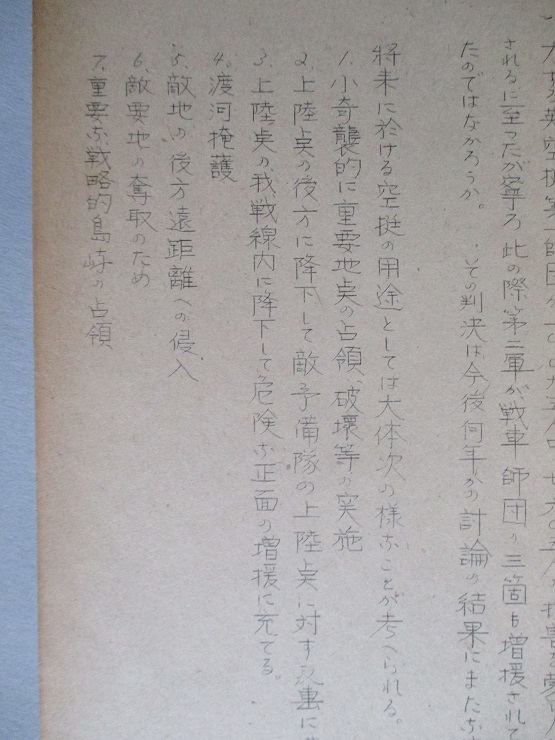 されるに至つたが寧ろ此の際第二軍が戦車師団の三箇も増援されて
たのではなかろうか。その判決は今後何年かの討論の結果にまた
将来に於ける空挺の用途としては大体次の様なことが考へられる。
1. 小奇襲的に重要地点の占領、破壊等の実施
2. 上陸点の後方に降下して敵予備隊の上陸点に対す
3. 上陸点の我戦線内に降下して危険な正面の増援に充てる。
4. 渡河掩護
5. 敵地の後方遠距離への侵入
6. 敵要地の奪取のため
7. 重要な戦略的島嶼の占領